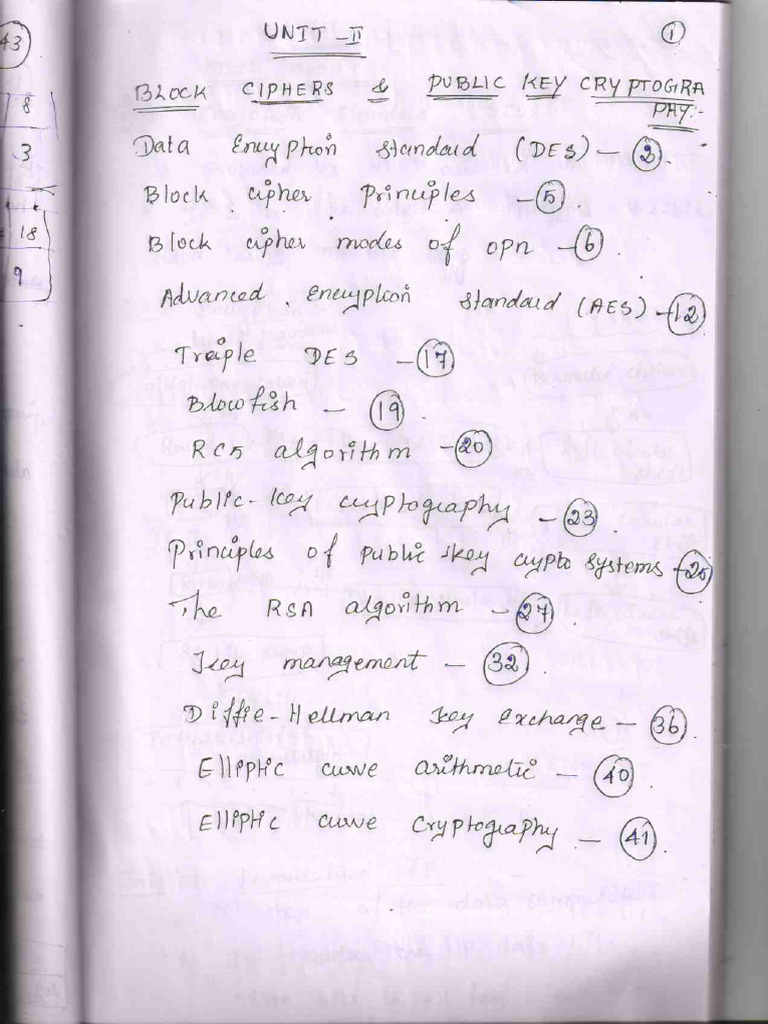 43
8
3
18
9
UNIT-II
1
BLOCK CIPHERS & PUBLIC KEY CRYPTOGRA
PHY:-
Data Encryption Standard (DES) - 2.
Block cipher Principles - 5
Block cipher modes of opn - 6.
Advanced Encryption Standard (AES) - 12
Traiple DES - 17
Blowfish - 19.
RC5 algorithm - 20
Public-key cryptography - 23
Principles of public key crypto systems - 25
The RSA algorithm - 27
Key management - 32.
Diffie-Hellman key exchange - 36
Elliptic curve arithmetic - 40.
Elliptic curve cryptography - 41